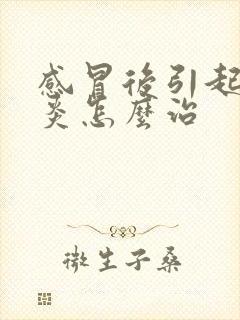 感冒後引起
炎怎麼治
微生子桑